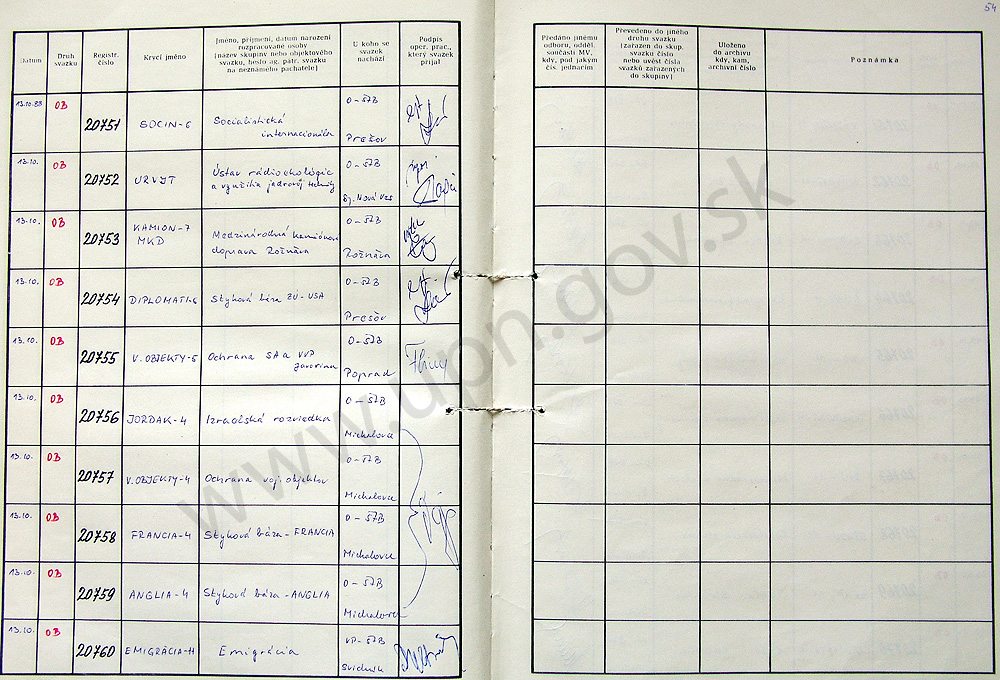 54
Datum
Druh svazku
Registr. číslo
Krycí jméno
Jméno, příjmení, datum narození
rozpracované osoby
(název skupiny nebo objektového
svazku, heslo ag. pátr. svazku
na neznámého pachatele)
U koho se
svazek
nachází
Podpis
oper. prac.,
který svazek
přijal
Předáno jinému
odboru, odděl.
součásti MV,
kdy, pod jakým
čís. jednacím
Převedeno do jiného
druhu svazku
(zařazen do skup.
svazku číslo
nebo uvést čísla
svazků zařazených
do skupiny)
Uloženo
do archivu
kdy, kam,
archivní číslo
Poznámka
13.10.88 OB 20751 SOCIN-6 Socialistická
internacionála
O-ŠTB
Prešov
13.10. OB 20752 URVJT Ústav rádioekológie
a využitia jadrovej
O-ŠTB
Sp. Nová Ves
13.10. OB 20753 KAMION-7
MKD
Medzinárodná kamiónová
doprava Rožňava
O-ŠTB
Rožňava
13.10. OB 20754 DIPLOMATI-6 Styková báza ZÚ-USA
O-ŠTB
Prešov
13.10. OB 20755 V.OBJEKTY-5 Ochrana SA a VVP
Javorina
O-ŠTB
Poprad
13.10. OB 20756 JORDAK-4 Izraelská rozviedka
O-ŠTB
Michalovce
13.10. OB 20757 V.OBJEKTY-4 Ochrana voj. objektov
O-ŠTB
Michalovce
13.10. OB 20758 FRANCIA-4 Styková báza-FRANCIA
O-ŠTB
Michalovce
13.10. OB 20759 ANGLIA-4 Styková báza-ANGLIA
O-ŠTB
Michalovce
13.10. OB 20760 EMIGRÁCIA-H Emigrácia
VP-ŠTB
Svidník
www.upn.gov.sk